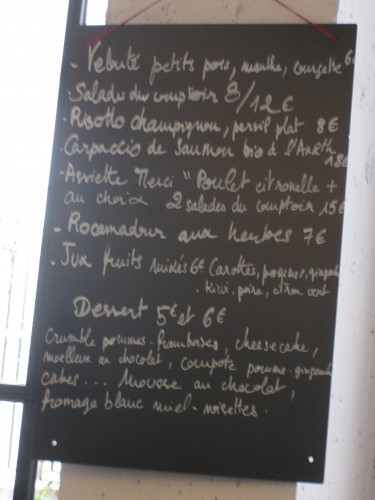 - Velouté petits pois, menthe, courgette 6€
- Salades du comptoir 8/12€
- Risotto champignon, persil plat 8€
- Carpaccio de Saumon bio à l'Aneth 18€
- Assiette Merci "Poulet citronelle +
au choix 2 salades du comptoir 15€
- Rocamadour aux herbes 7€
- Jux fruits mixés 6€ Carottes, pommes, gingembre
- Kiwi, poire, citron vert
Dessert 5€ et 6€
Crumble pommes-framboises, cheesecake,
moelleux au chocolat, compote pomme-gingembre
cakes... Mousse au chocolat,
fromage blanc miel-noisettes.